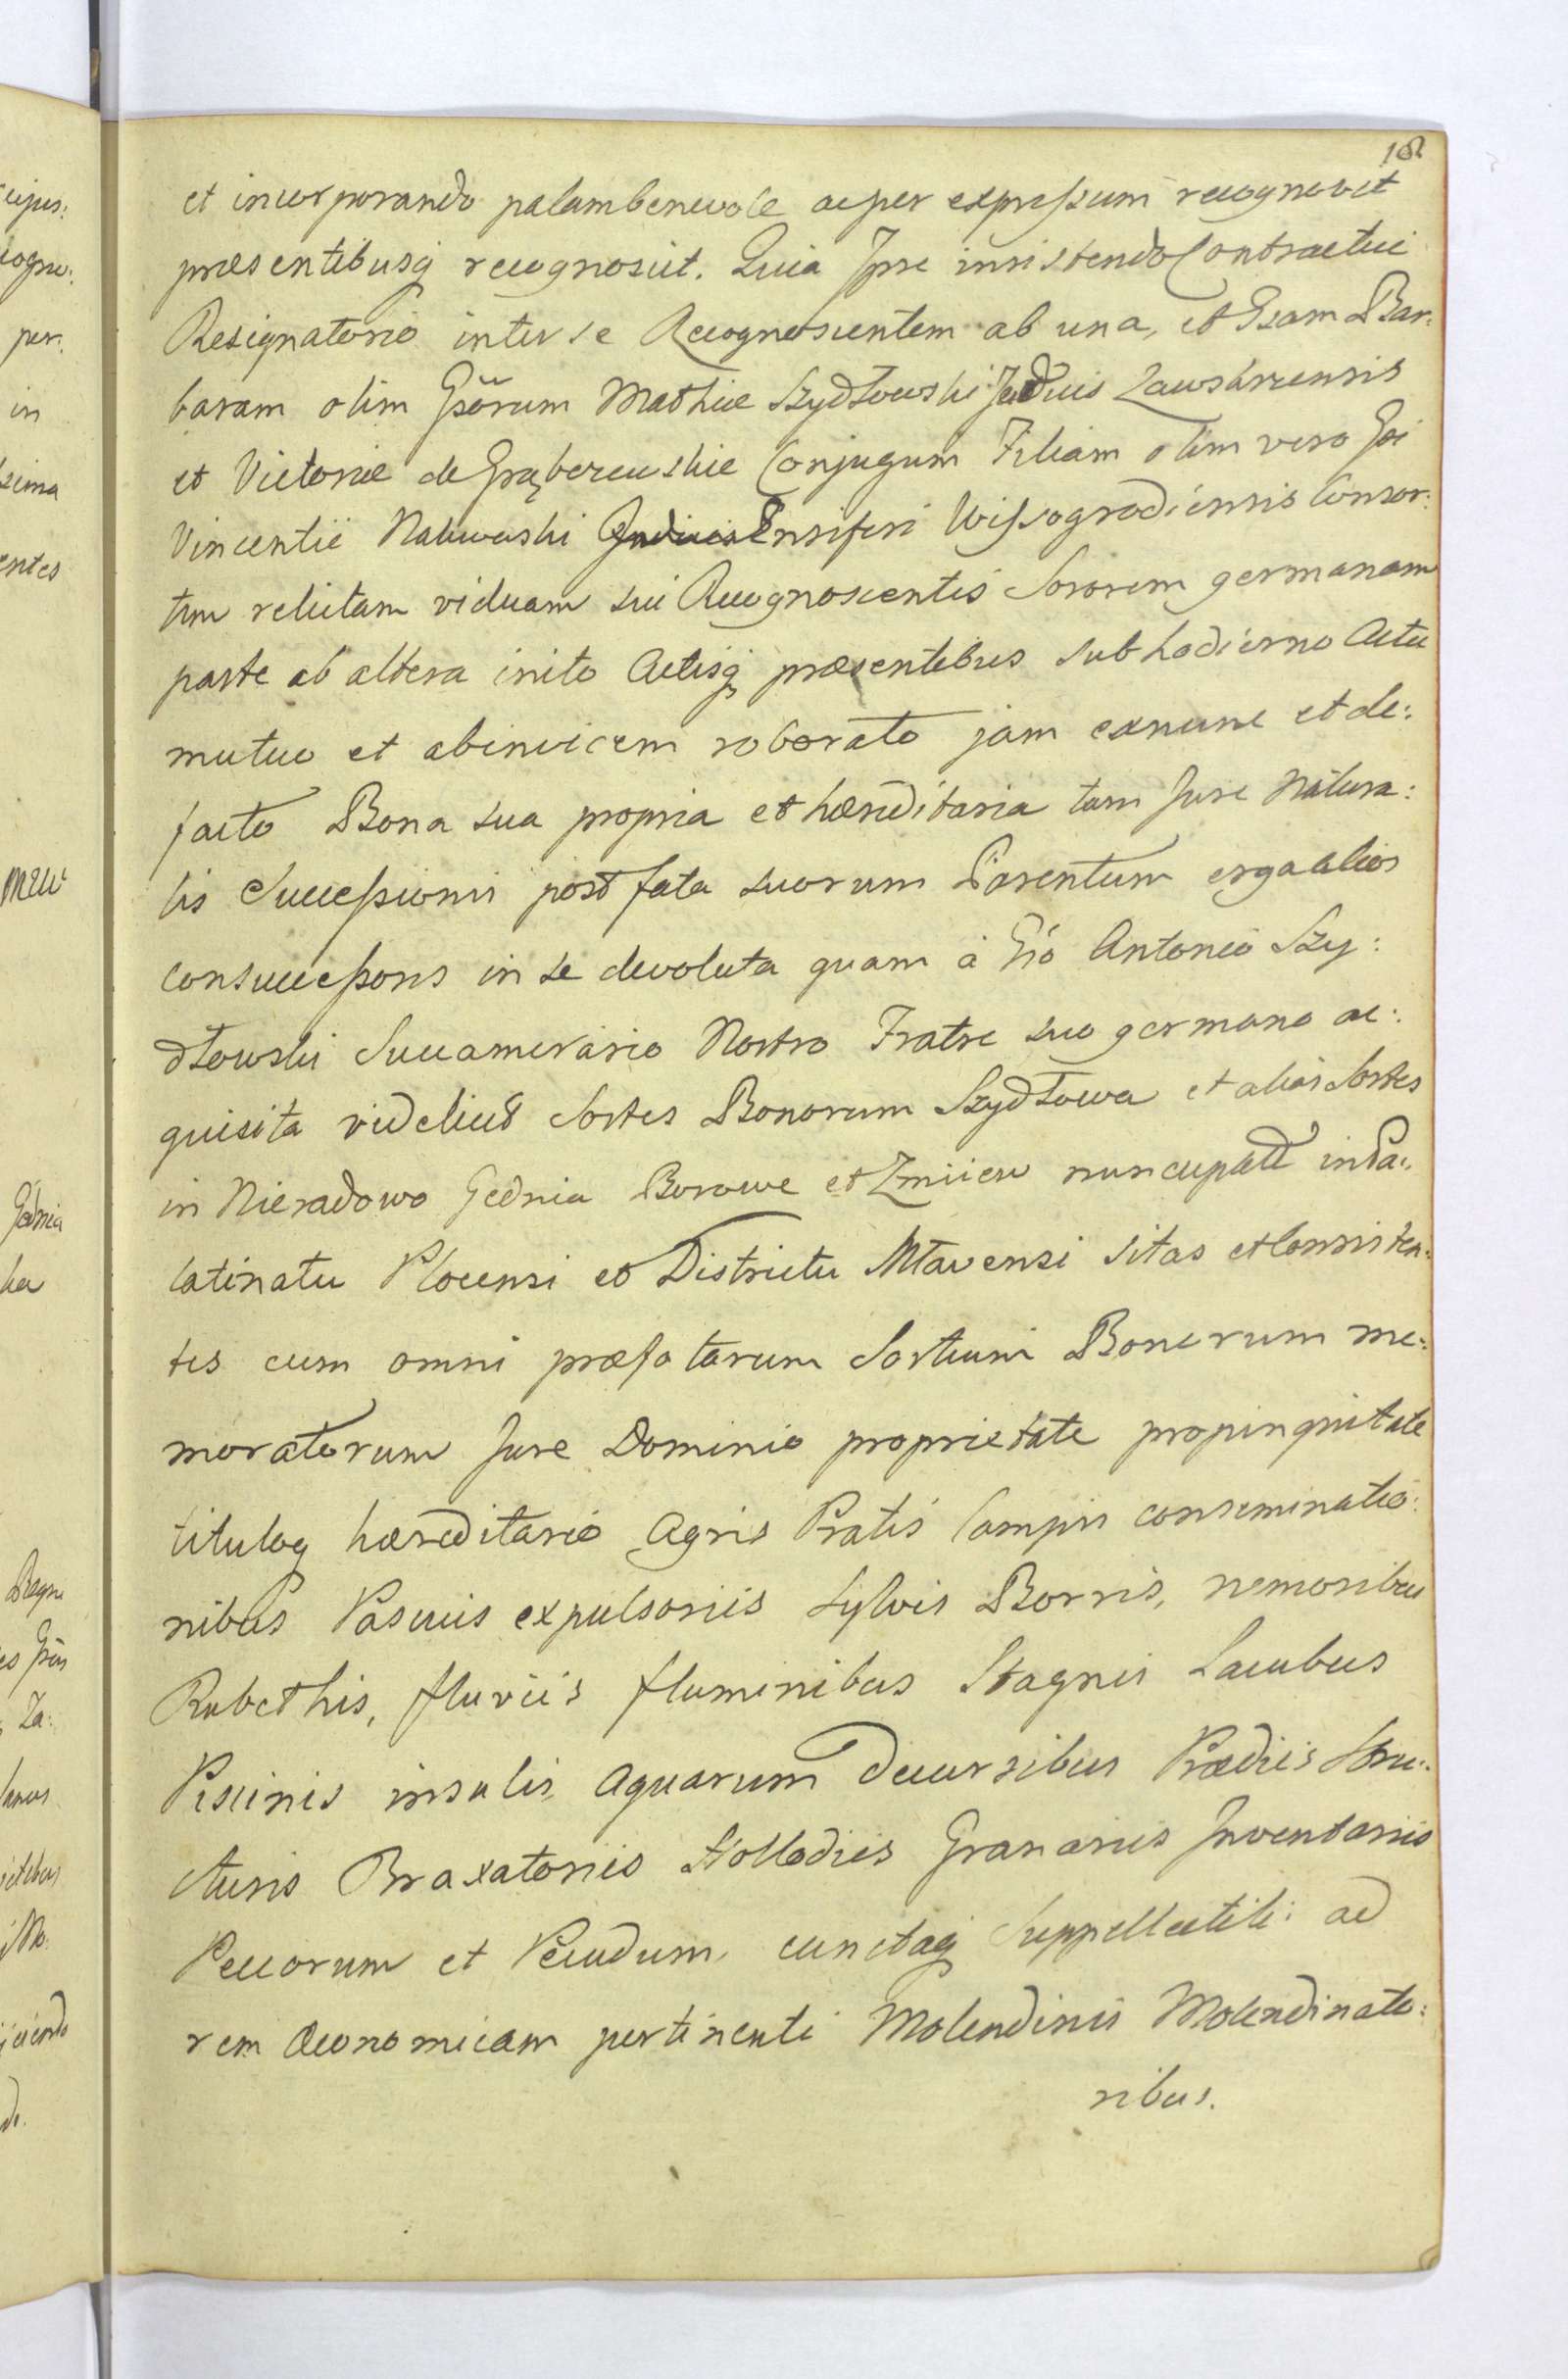 et incorporando palam benevole ac per expressum recognovit
præsentibusq recognoscit. Quia Ipse insistendo Contractui
Resignatorio inter se Recognoscentem ab una, et Gsam Bar:
baram olim Gsorum Mathiæ Szydłowski Judicis Zawskrzensis
et Victoriæ de Conjugum Filiam olim vero Gsi
Vincentii Nakwaski Ensiferi Wissogrodiensis Consor:
tem relictam viduam sui Recognoscentis Sororem germanam
parte ab altera inito Actisq præsentibus sub hodierno Actu
mutuo et abinvicem roborato jam exnunc et de:
facto Bona sua propria et hæreditaria tam Jure Natura:
lis Successionis post fata suorum Parentum erga alios
consuccessores in se devoluta quam à Gso Antonio Szy:
dłowski Succamerario Nostro Fratre suo germano ac:
quisita videlicet Sortes Bonorum Szydłowa et alias Sortes
in Nieradowo Gednia Borowe et Zmiiew nuncupatt in Pa:
latinatu Plocensi et Districtu Młavensi sitas et consisten:
tes cum omni præfatarum Sortium Bonorum me:
moratorum Jure Dominio proprietate propinquitate
tituloq hæreditario Agris Pratis Campis conseminatio:
nibus Pascuis expulsoriis Sylvis Borris, nemoribus
Rubethis, fluviis fluminibus Stagnis Lacubus
Piscinis insulis, Aquarum decursibus Prædiis Stru:
cturis Braxatoriis Hollodiis Granariis Inventariis
Peccorum et Pecudum, cunctaq Suppellectili: ad
rem Œconomicam pertinenti Molendinis Molendinato:
ribus.